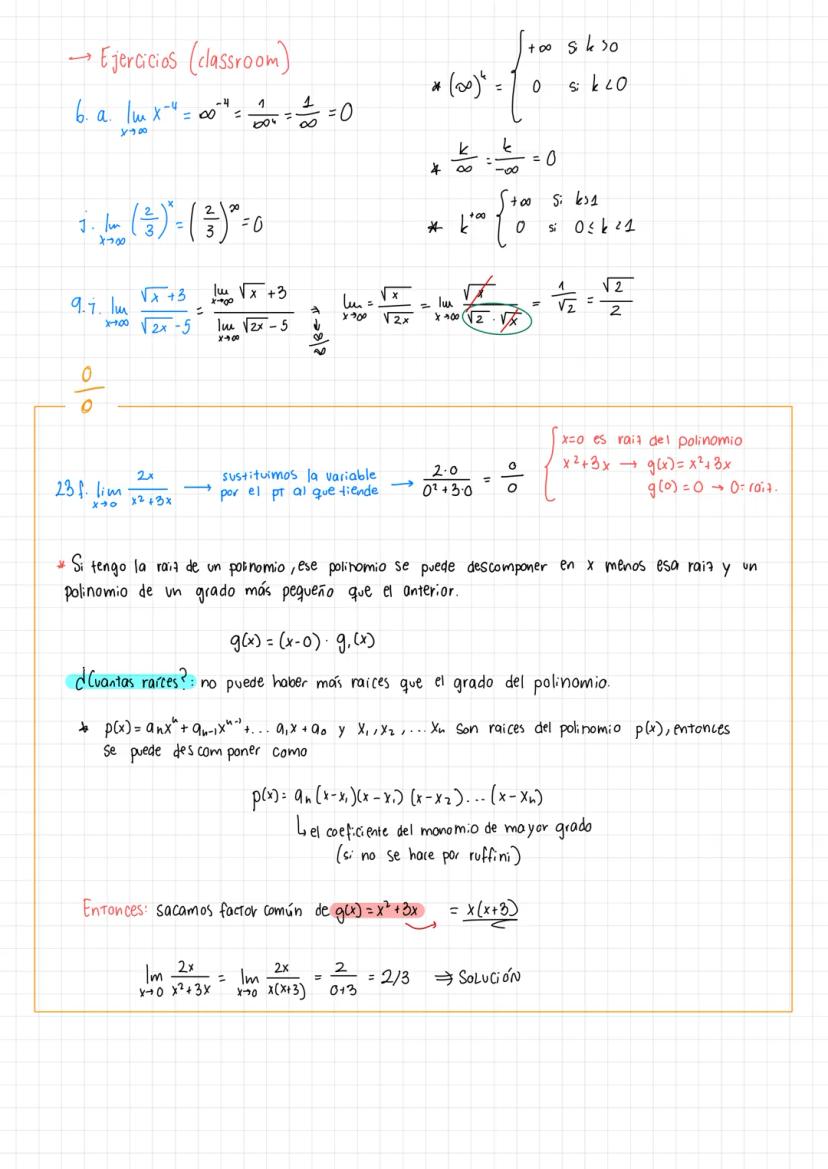 → Ejercicios (classroom)
6. a. lim x→∞ x⁻⁴ = ∞⁻⁴ = 1/∞⁴ = 1/∞ = 0
* (∞)ᵏ = { +∞ si k>0
0 si k<0
* k/∞ = k/-∞ = 0
j. lim x→∞ (2/3)ˣ = (2/3)^∞ = 0
* k^+∞ { +∞ si k>1
0 si 0≤k<1
9.i. lim x→∞ (√x+3)/(√2x-5) = (lim x→∞ √x+3)/(lim x→∞ √2x-5) → ∞/∞ lim x→∞ = √x/√2x = lim x→∞ √x/(√2·√x) = 1/√2 = √2/2
0/0
23f. lim x→0 2x/(x²+3x) → sustituimos la variable
por el pt al que tiende → 2·0/(0²+3·0) = 0/0
{ x=0 es raiz del polinomio
x²+3x → g(x)=x²+3x
g(0)=0 → 0=raiz.
* Si tengo la raiz de un polinomio, ese polinomio se puede descomponer en x menos esa raiz y un
polinomio de un grado más pequeño que el anterior.
g(x) = (x-0) · g₁(x)
¿Cuantas raíces?: no puede haber más raices que el grado del polinomio.
* p(x) = aₙxⁿ + aₙ₋₁xⁿ⁻¹ +... a₁x + a₀ y x₁, x₂, ... xₙ son raices del polinomio p(x), entonces
se puede descomponer como
p(x) = aₙ (x-x₁)(x-x₁) (x-x₂)... (x-xₙ)
↳ el coeficiente del monomio de mayor grado
(si no se hace por ruffini)
Entonces: sacamos factor común de g(x) = x²+3x = x(x+3)
lim x→0 2x/(x²+3x) = lim x→0 2x/(x(x+3)) = 2/(0+3) = 2/3 ⇒ SOLUCIÓN